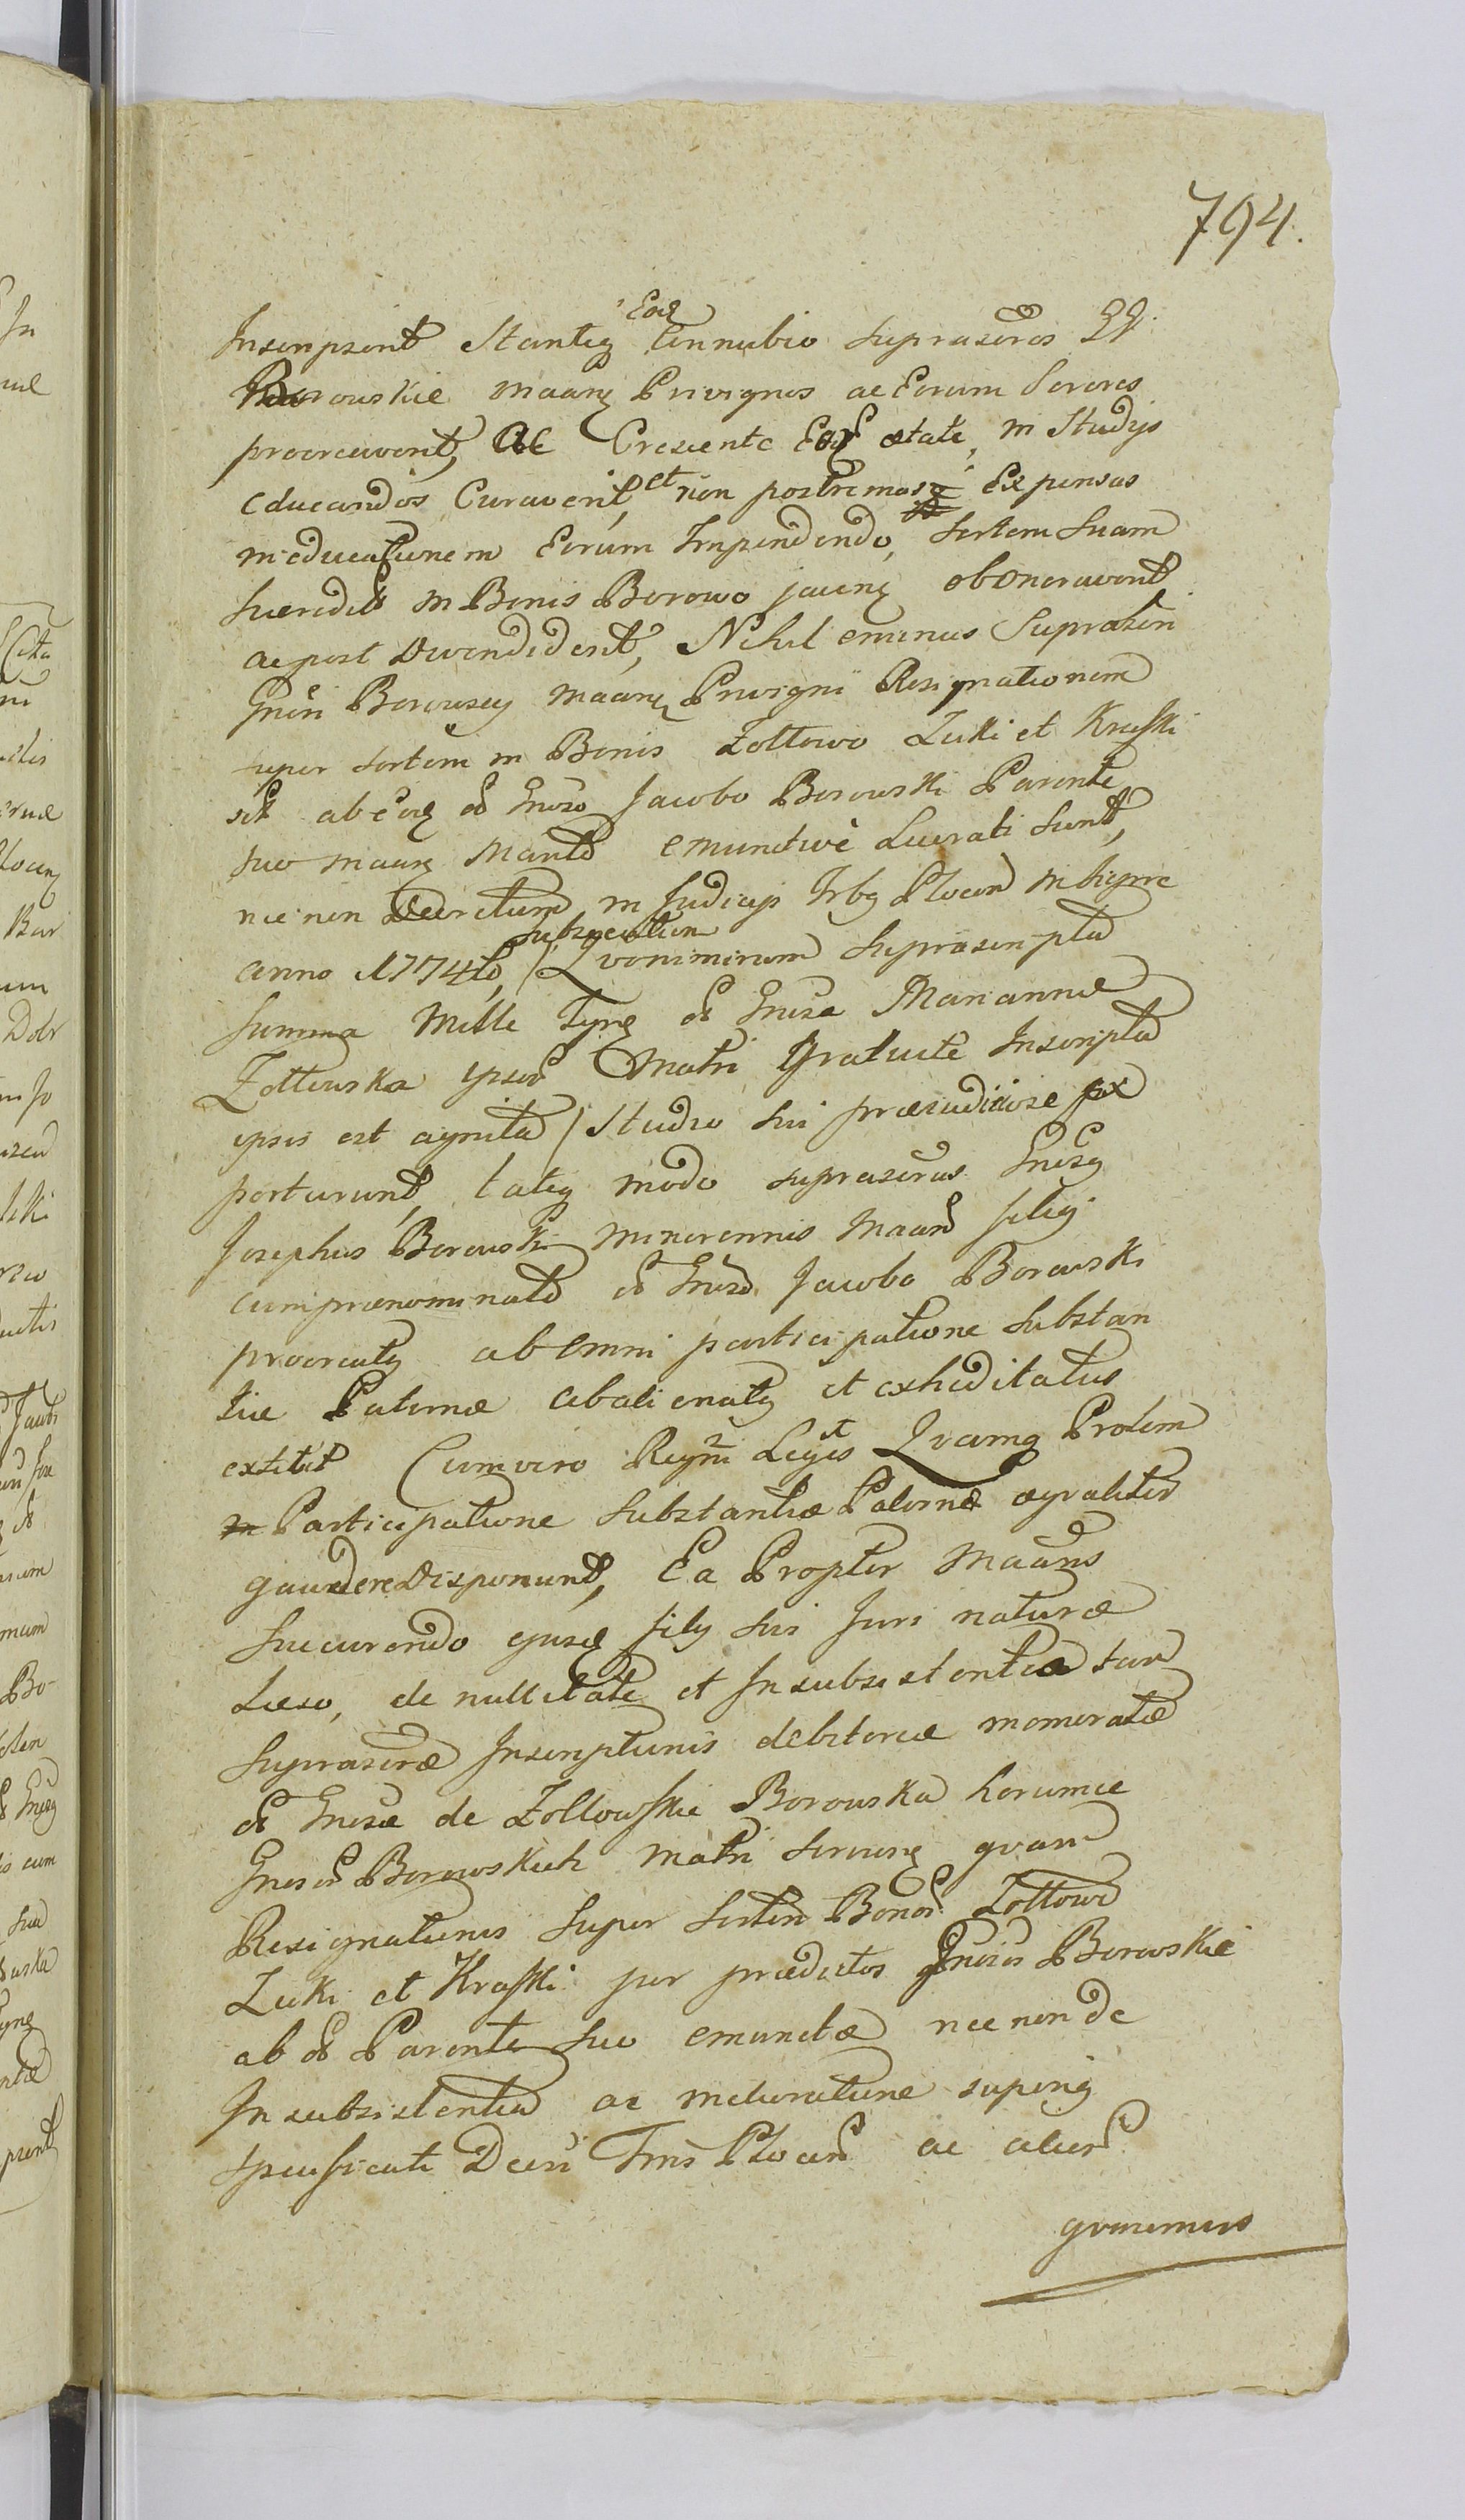 794.
Inscripserit Stanteq Eoq Connubio suprascros GG.
Borowskie Maarq Privignos ac Eorum Sorores
procreaverit, ac Crescente Eoq ætate, in Studijs
educandos Curaverit, et non postremasq Expensas
in educationem Eorum Impendendo, Sortem Suam
in Bonis Borowo jacenq obonoraverit
ac post Divendiderit, Nihil eminus Suprascri
Gnosi Borowscy Maarq Privigni Resignationem
super Sortem in Bonis Zołtowo Luki et Kraski
ab eoq olim Gnoso Jacobo Borowski Parente
suo Maarq Marito emunctive Lucrati sunt,
nec non Decretum in Judicijs Trbq Plocen
anno 1774to, subsecutum / Qvonimirum Suprascripta
Summa Mille Tynq ol Gnosa Marianna
Zołtowska ipsor Matri Gratuite Inscripta
ipsis est agnita / Studio sui præiudiciose ex
portarunt, taliq modo suprascrus Gnosq
Josephus Borowski minorennis Maar filiq
cum prænominato ol Gnoso Jacobo Borowski
procreatq ab omni participatione Substan
tiæ Paternæ abalienatq et exheditatus
extitit Cum vero Regni Leges Qvamq Prolem
Participatione Substantiæ Paternæ æqvaliter
gaudere Disponunt, Ea Propter Maarus
Succurendo ejusq filij sui Juri naturæ
Læso, de nullitate et Insubsistentia tam
Suprascræ Inscriptionis debitoriæ memoratæ
ol Gnosæ de Zołtowskie Borowska horumce
Gnosor Borowskich Matri Servienq qvam
Resignationis super Sortem Bonor Zołtowo
Luki et Kraski per prædictos Gnosos Borowskie
ab ol Parente suo emunctæ nec non de
Insubsistentia ac supeniq
Specificati Decri Trnis Plocen ac alior
qvorumvis